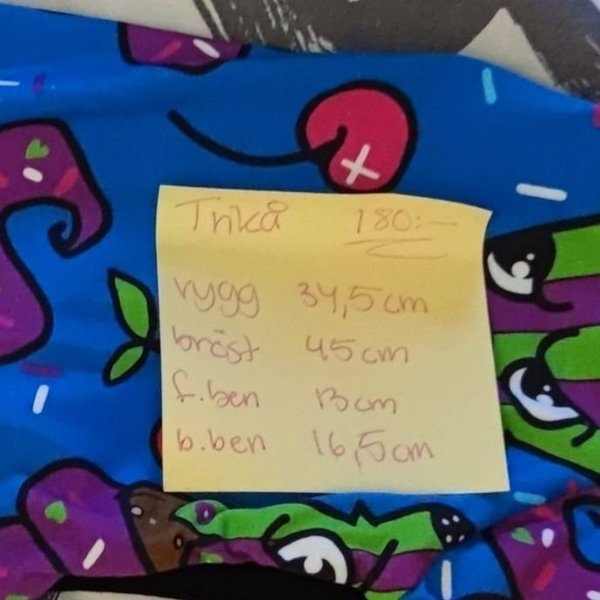 Trikå 180:-
rygg 34,5cm
bröst 45cm
f.ben 13cm
b.ben 16,5cm